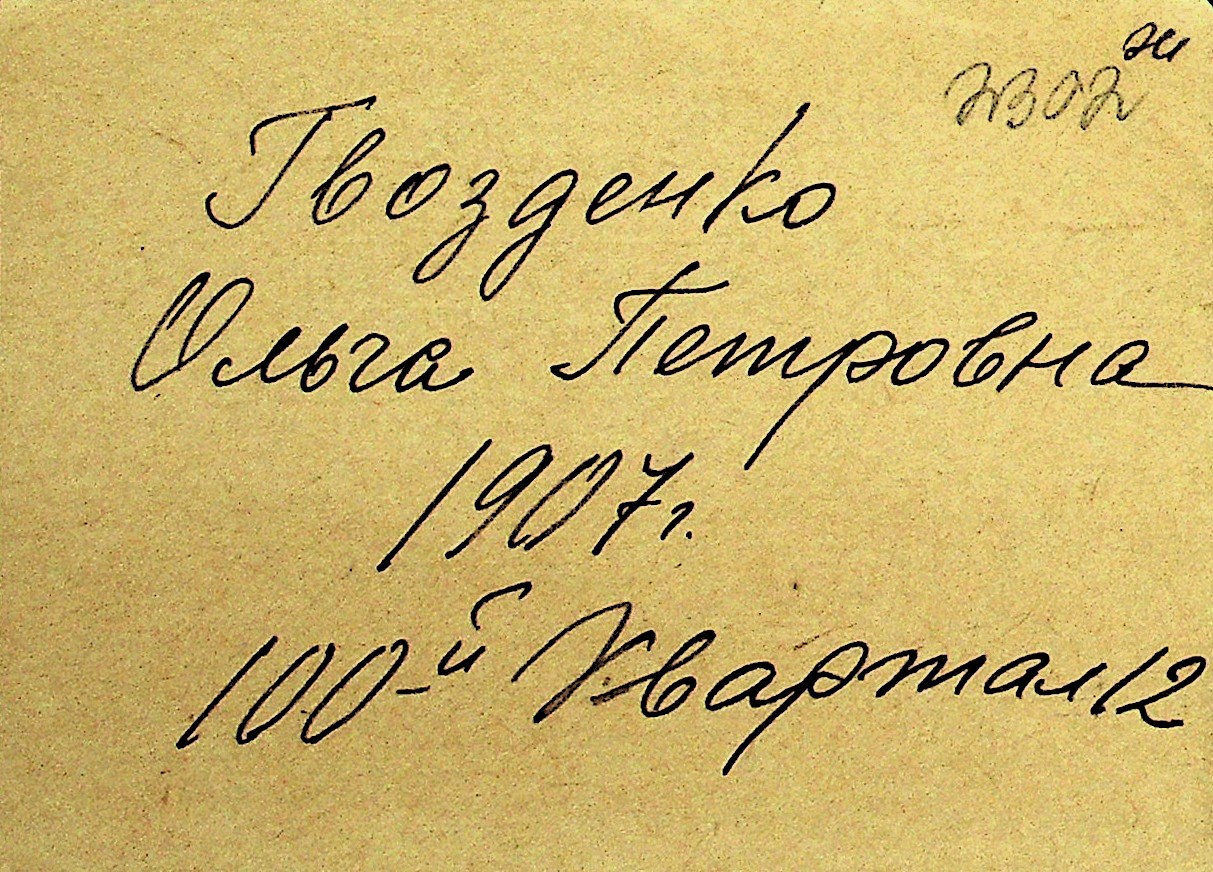 Гвозденко
Ольга Петровна
1907г.
100-й Квартал 12